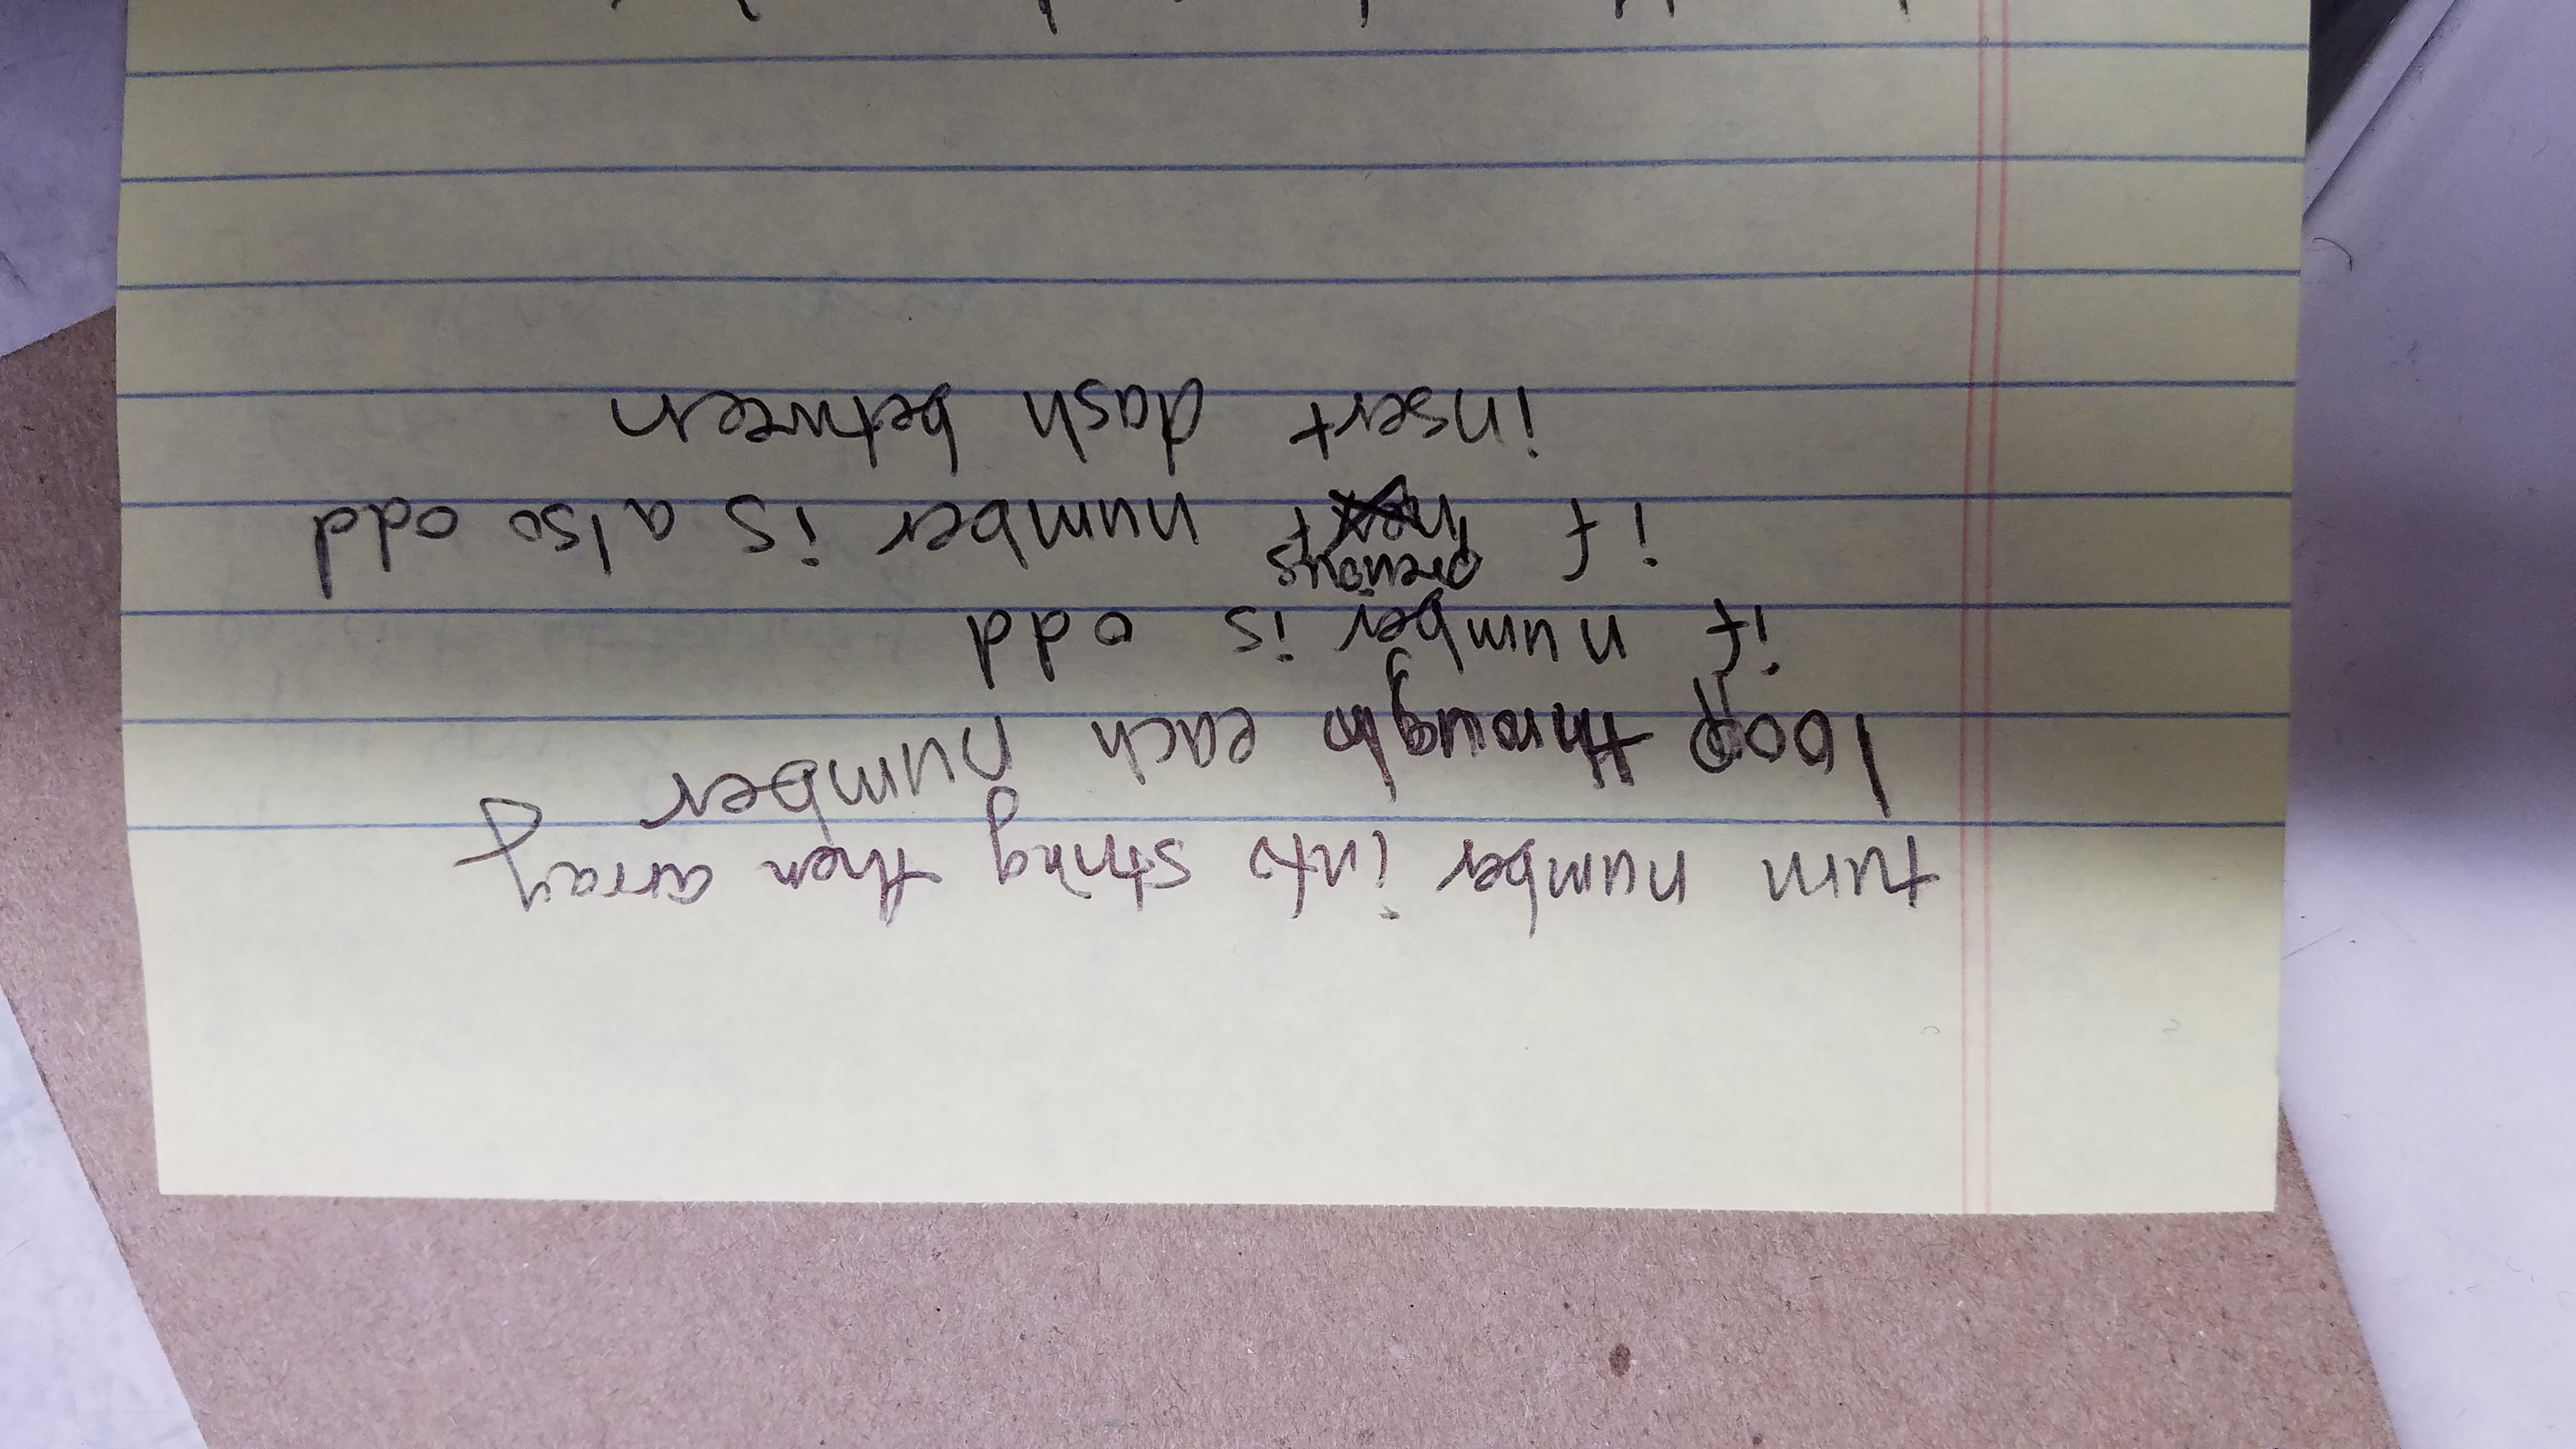 turn number into string then array
loop through each number
if number is odd
if previous number is also odd
insert dash between